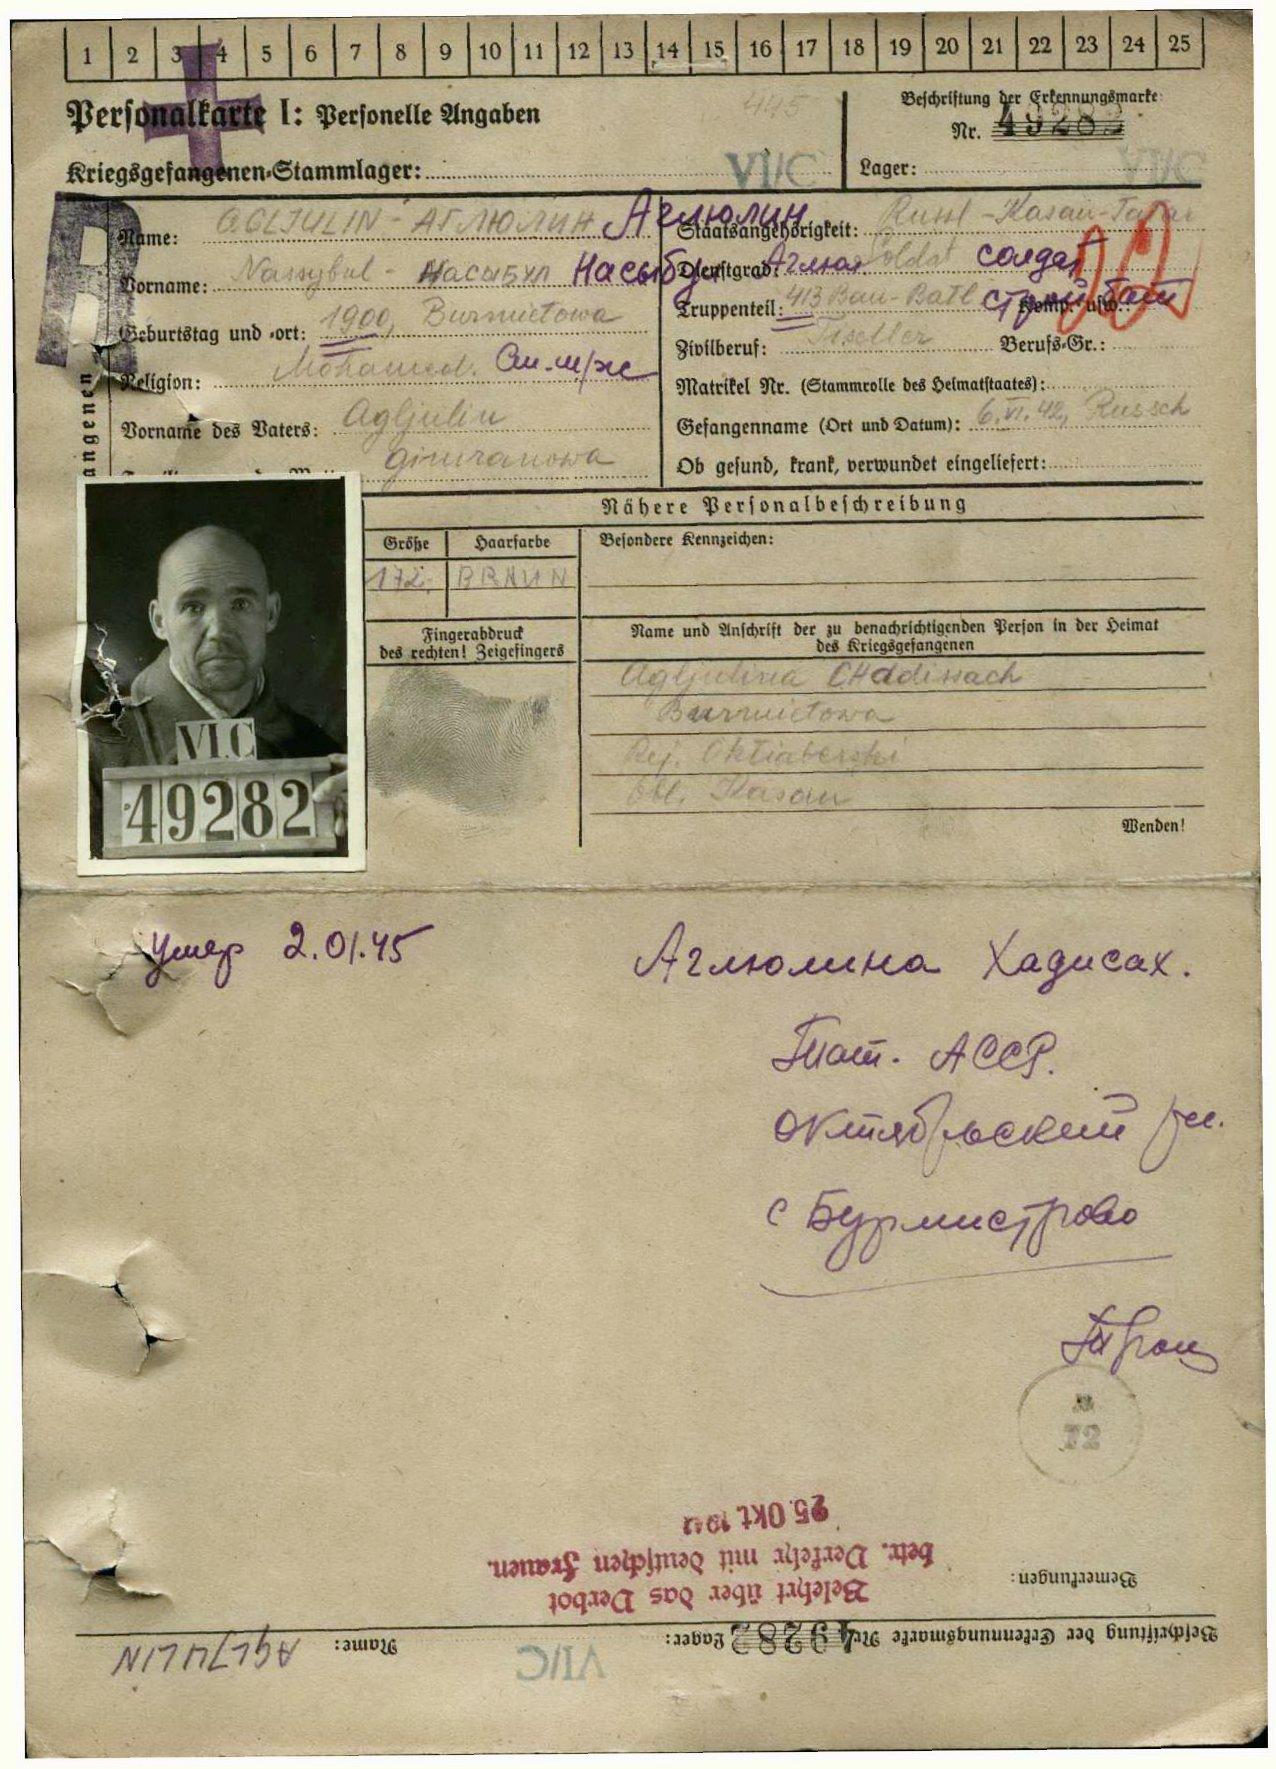 1 2 3 4 5 6 7 8 9 10 11 12 13 14 15 16 17 18 19 20 21 22 23 24 25
Personalkarte I: Personelle Angaben
445
Beschriftung der Erkennungsmarke
Nr. 49282
Kriegsgefangenen-Stammlager: VI/C
Lager: VI/C
Name: AGLJULIN - АГЛЮЛИН Аглюлин
Staatsangehörigkeit: Russl - Kasan - Tatar
Vorname: Nassybul - Насыбул Насыбул Аглюл
Dienstgrad: Soldat солдат
Truppenteil: 413 Bau-Batl стройбат Komp. usw.:
Geburtstag und -ort: 1900, Burmietowa
Zivilberuf: Berufs-Gr.:
Religion: Mohamed. См. н/ж
Matrikel Nr. (Stammrolle des Heimatstaates):
Vorname des Vaters: Agljulin
Gefangenname (Ort und Datum): 6.VI.42, Russch
angenen
Ob gesund, krank, verwundet eingeliefert:
Nähere Personalbeschreibung
Größe Haarfarbe Besondere Kennzeichen:
172. BRAUN
Fingerabdruck
des rechten! Zeigefingers
Name und Anschrift der zu benachrichtigenden Person in der Heimat
des Kriegsgefangenen
Agljulina CHadissach
Burmietowa
Rej. Oktiaberski
Obl. Kasan
VI.C
49282
Wenden!
Умер 2.01.45
Аглюлина Хадисах.
Тат. АССР.
Октябрьский р-н.
с Бурмистрово
72
25. Okt. 194
Belehrt über das Verbot
betr. Verkehr mit deutschen Frauen.
Bemerkungen:
Beschriftung der Erkennungsmarke Nr. 49282 Lager: VI/C Name: AGLJULIN